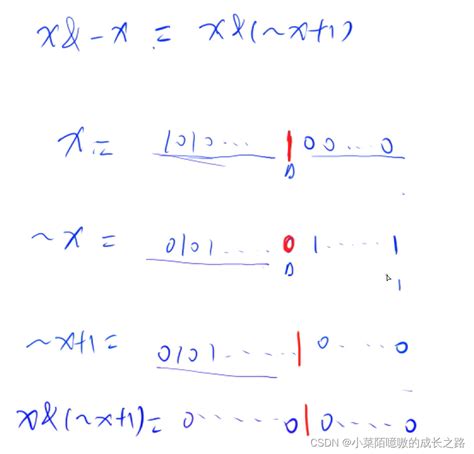 x&-x = x&(~x+1)
x= 1010... 1 00...0
~x = 0101..... 0 1.....1
1
~x+1= 0101...... 1 0.....0
x&(~x+1)= 0......0 1 0.....0
CSDN @小菜陌噫嗷的成长之路